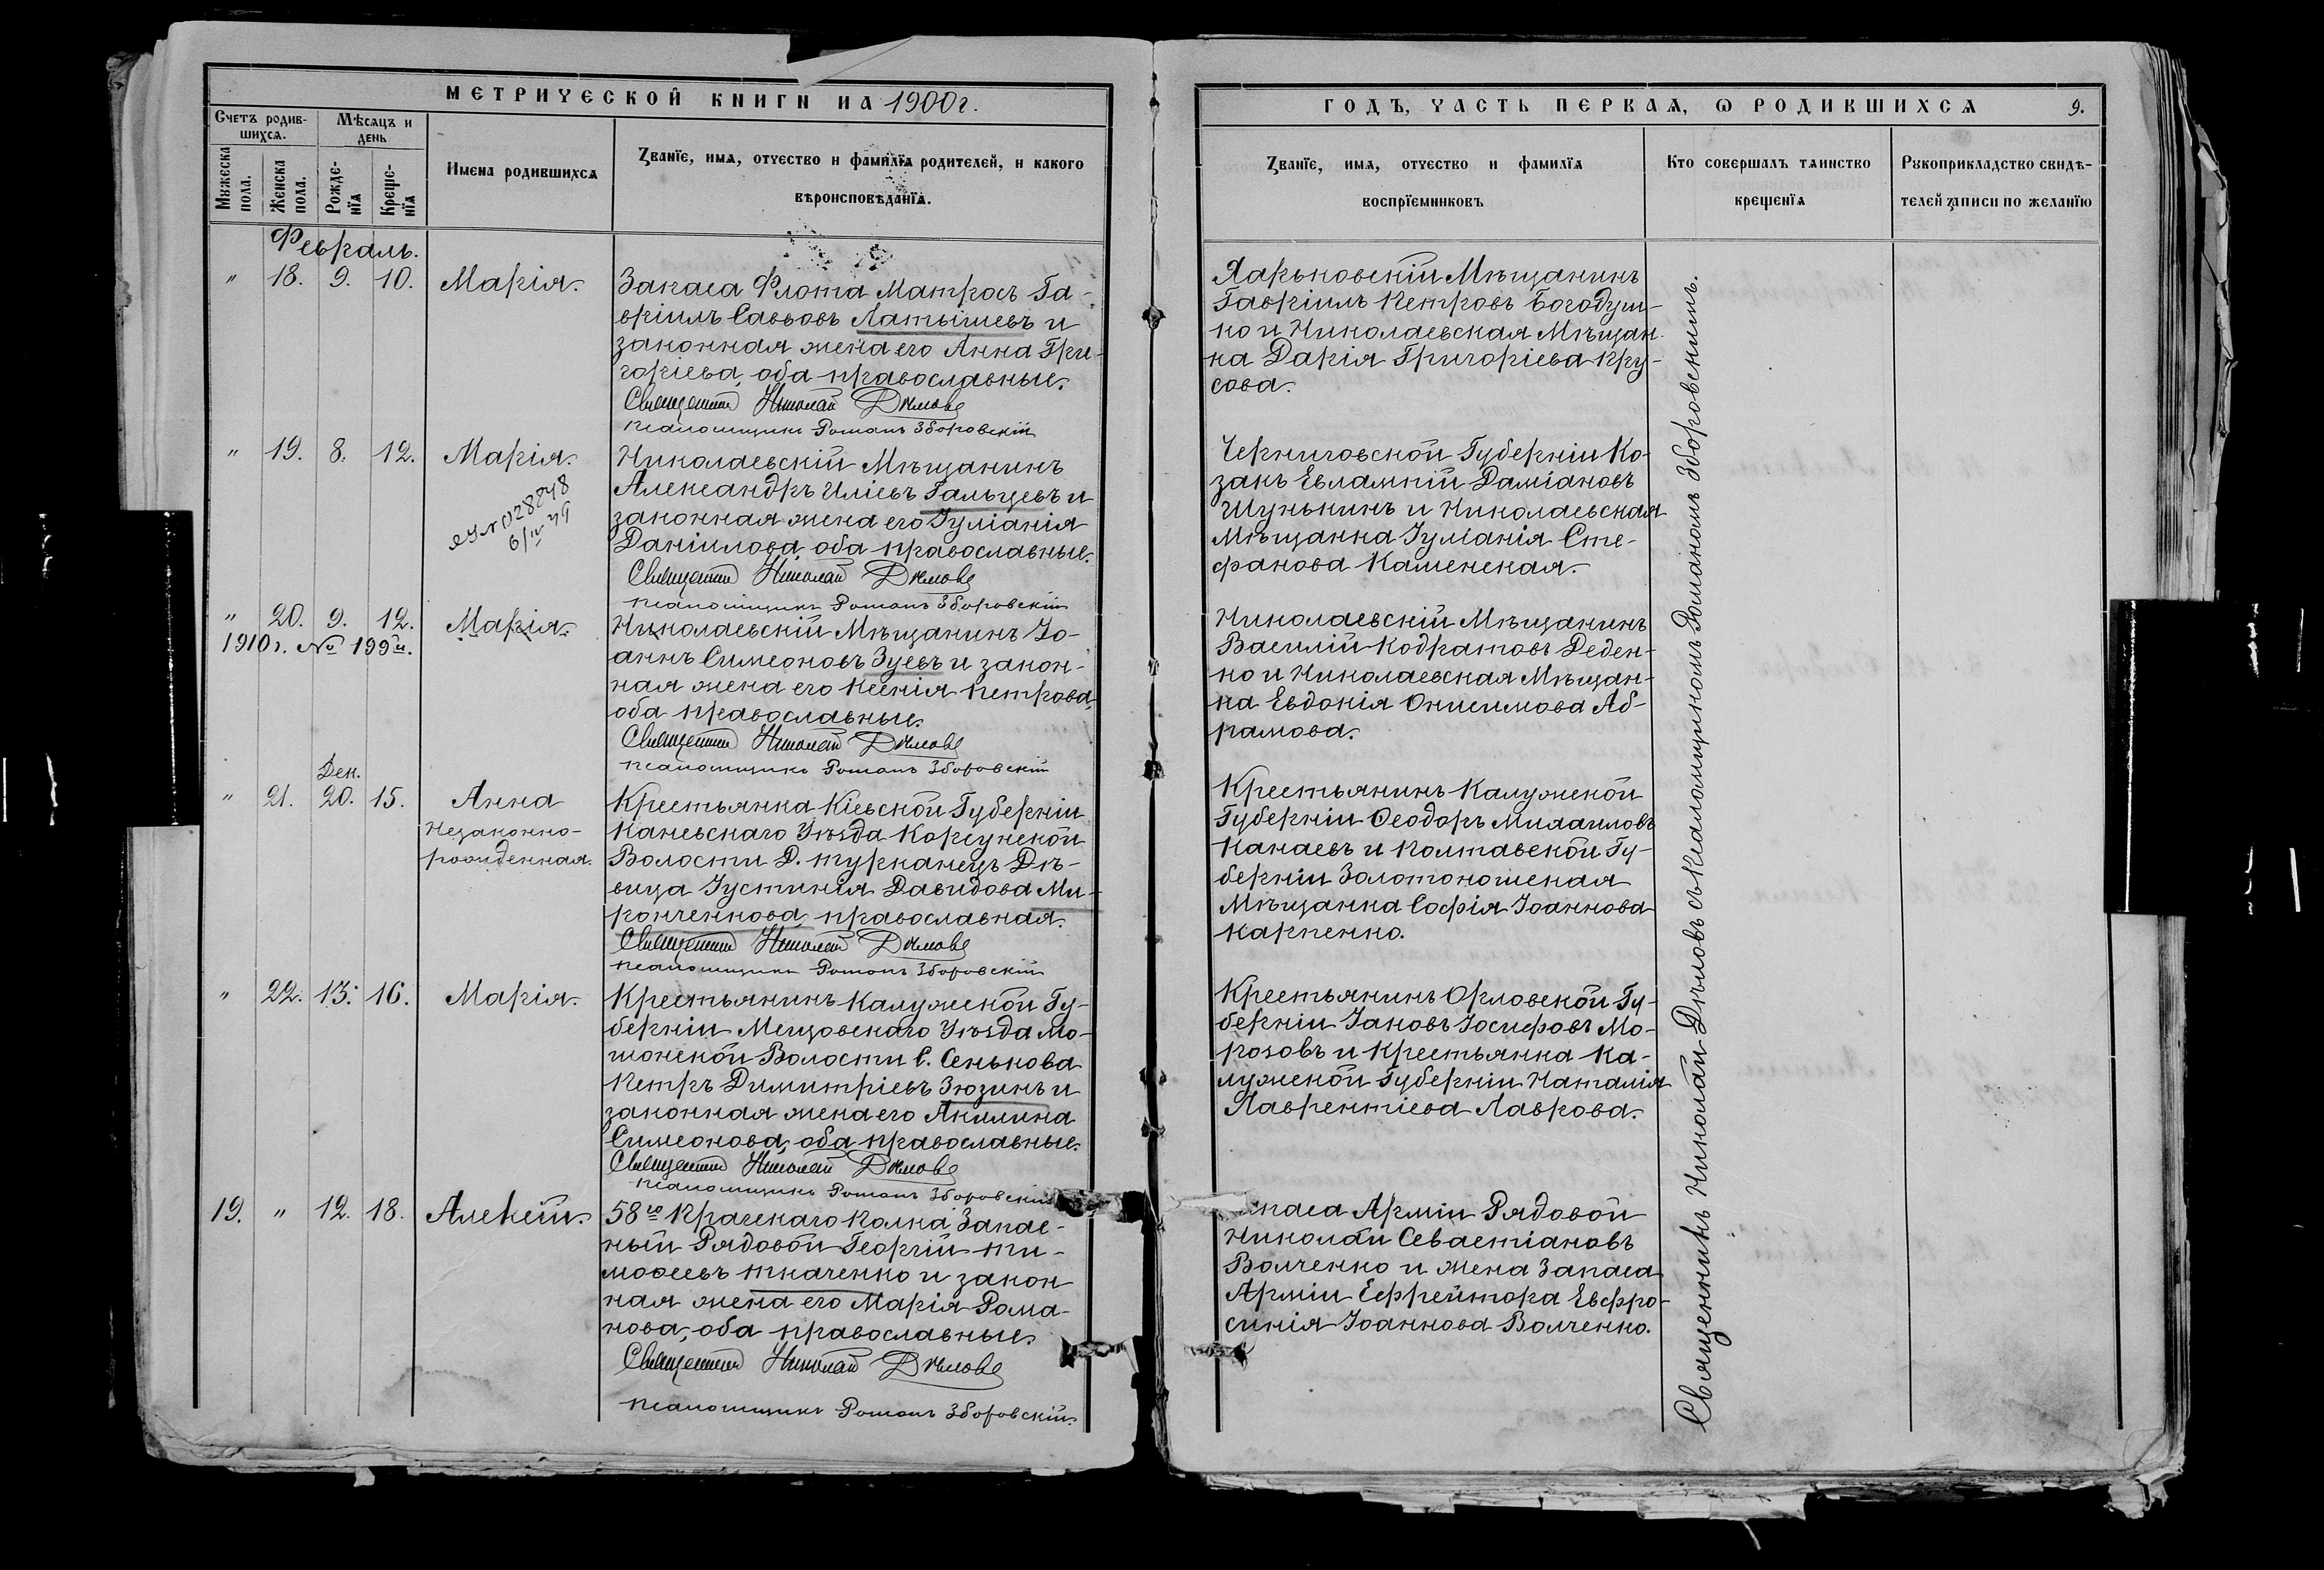 МЕТРИЧЕСКОЙ КНИГИ НА 1900 г.
Счетъ родив-
шихся.
Мѣсяцъ и
день
Мужеска
пола.
Женска
пола.
Рожде-
нія
Креще-
нія
Имена родившихся
Званіе, имя, отчество и фамилія родителей, и какого
вѣроисповѣданія.
Февраль.
" 18. 9. 10. Марія.
Запаса Флота Матросъ Га-
вріилъ Саввовъ Латышевъ и
законная жена его Анна Гри-
горіева, оба православные.
Священникъ Николай Дѣловъ
Псаломщикъ Романъ Зборовскій
" 19. 8. 12. Марія.
028848
6/IV 39
Николаевскій Мѣщанинъ
Александръ Иліевъ Гальцевъ и
законная жена его Іуліанія
Даніилова, оба православные.
Священникъ Николай Дѣловъ
Псаломщикъ Романъ Зборовскій
" 20. 9. 12. Марія.
1910 г. № 199й.
Николаевскій Мѣщанинъ Іо-
аннъ Симеоновъ Зуевъ и закон-
ная жена его Ксенія Петрова,
оба православные.
Священникъ Николай Дѣловъ
Псаломщикъ Романъ Зборовскій
Дек.
" 21. 20. 15. Анна
Незаконно-
рожденная.
Крестьянка Кіевской Губерніи
Каневскаго Уѣзда Корсунской
Волости Д. Туркенецъ Дѣ-
вица Іустинія Давидова Ми-
ронченкова, православная.
Священникъ Николай Дѣловъ
Псаломщикъ Романъ Зборовскій
" 22. 13. 16. Марія.
Крестьянинъ Калужской Гу-
берніи Мещовскаго Уѣзда Мо-
шонской Волости С. Сенькова
Петръ Димитріевъ Зюзинъ и
законная жена его Акилина
Симеонова, оба православные.
Священникъ Николай Дѣловъ
Псаломщикъ Романъ Зборовскій
19. " 12. 18. Алексій.
58го Прагскаго Полка Запас-
ный Рядовой Георгій Ти-
моѳеевъ Ткаченко и закон
ная жена его Марія Рома-
нова, оба православные.
Священникъ Николай Дѣловъ
Псаломщикъ Романъ Зборовскій.
ГОДЪ, ЧАСТЬ ПЕРВАЯ, Ѡ РОДИВШИХСЯ 9.
Званіе, имя, отчество и фамилія
воспріемниковъ
Кто совершалъ таинство
крещенія
Рукоприкладство свидѣ-
телей записи по желанію
Харьковскій Мѣщанинъ
Гавріилъ Петровъ Богодуш-
ко и Николаевская Мѣщан-
ка Дарія Григоріева Кру-
сова.
Черниговской Губерніи Ко-
закъ Евлампій Даміановъ
Шунькинъ и Николаевская
Мѣщанка Іуліанія Сте-
фанова Каменская.
Николаевскій Мѣщанинъ
Василій Кодратовъ Деден-
ко и Николаевская Мѣщан-
ка Евдокія Онисимова Аб-
рамова.
Крестьянинъ Калужской
Губерніи Ѳеодоръ Михаиловъ
Канаевъ и Полтавской Гу-
берніи Золотоношская
Мѣщанка Софія Іоаннова
Карпенко.
Крестьянинъ Орловской Гу-
берніи Іаковъ Іосифовъ Мо-
розовъ и Крестьянка Ка-
лужской Губерніи Наталія
Лаврентіева Лаврова.
Запаса Арміи Рядовой
Николай Севастіановъ
Волченко и жена Запаса
Арміи Ефрейтора Евфро-
синія Іоаннова Волченко.
Священникъ Николай Дѣловъ съ Псаломщикомъ Романомъ Зборовскимъ.